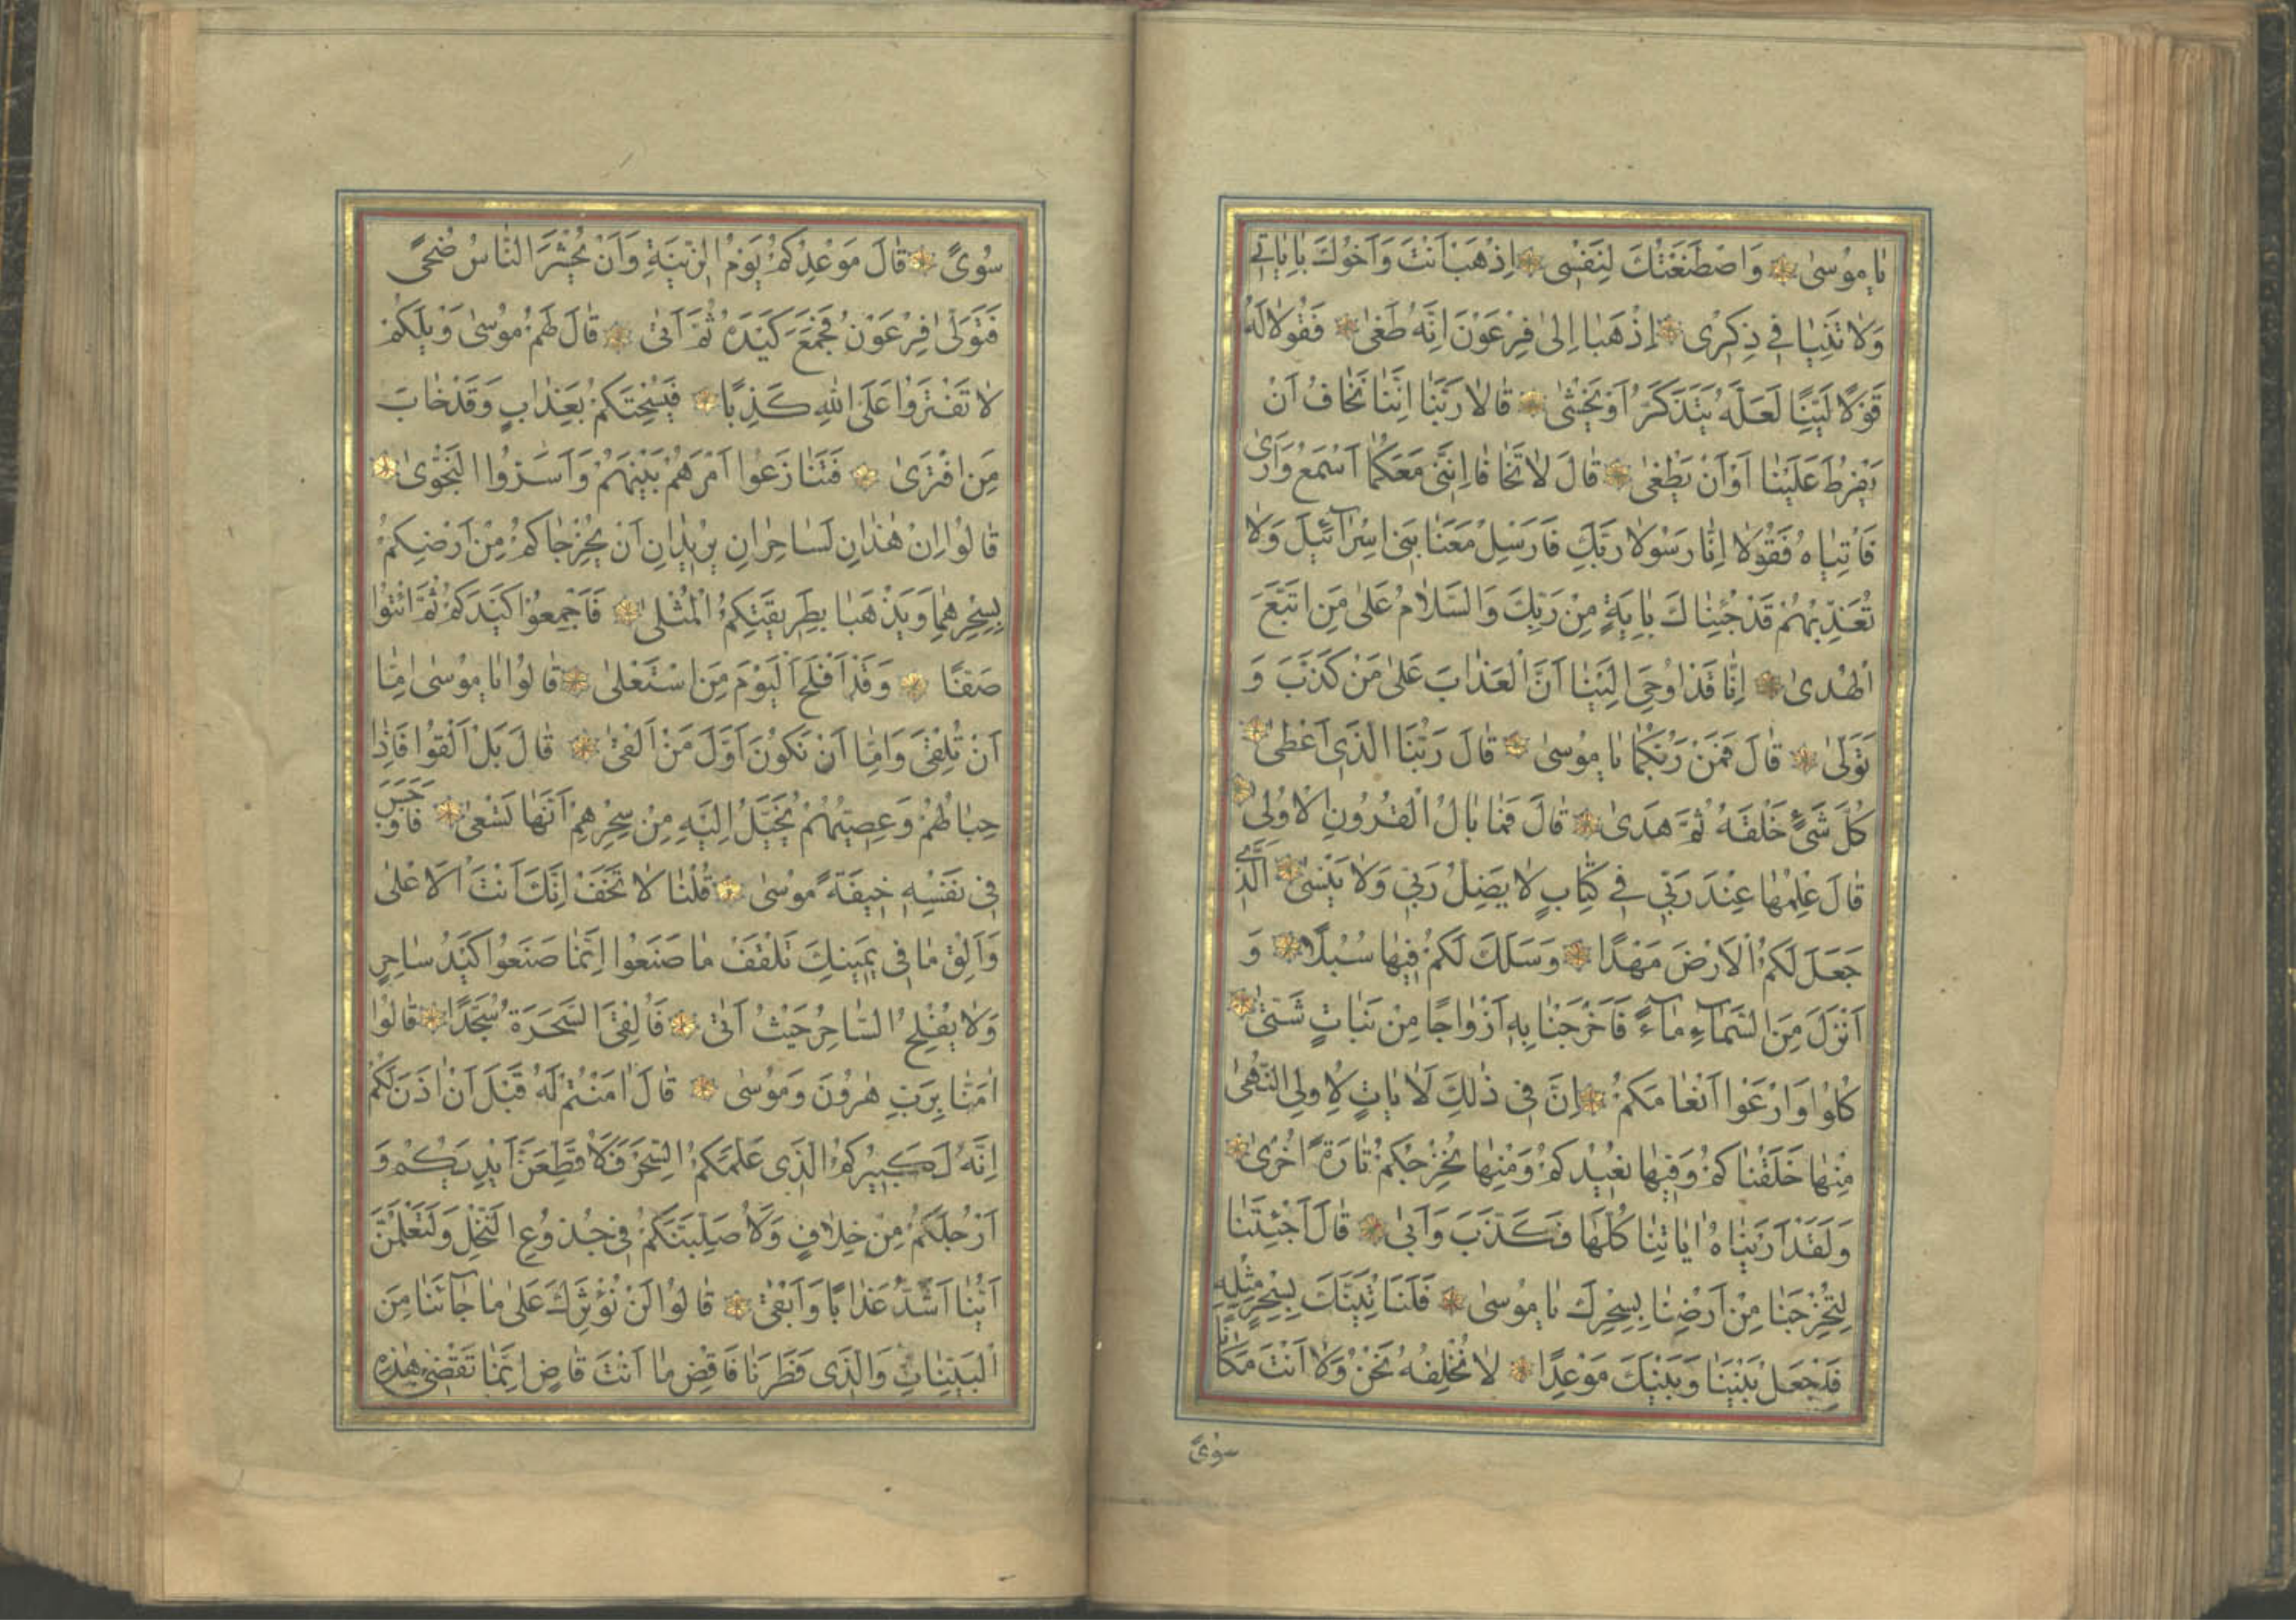 يَا مُوسىٰ وَاصْطَنَعْتُكَ لِنَفْسِى اِذْهَبْ اَنْتَ وَاَخُوكَ بِاٰيَاتِى
وَلَا تَنِيَا فِى ذِكْرِى اِذْهَبَا اِلىٰ فِرْعَوْنَ اِنَّهُ طَغىٰ فَقُولَا لَهُ
قَوْلًا لَيِّنًا لَعَلَّهُ يَتَذَكَّرُ اَوْ يَخْشىٰ قَالَا رَبَّنَا اِنَّنَا نَخَافُ اَنْ
يَفْرُطَ عَلَيْنَا اَوْ اَنْ يَطْغىٰ قَالَ لَا تَخَافَا اِنَّنِى مَعَكُمَا اَسْمَعُ وَاَرىٰ
فَاْتِيَاهُ فَقُولَا اِنَّا رَسُولَا رَبِّكَ فَاَرْسِلْ مَعَنَا بَنِى اِسْرَآئِيلَ وَلَا
تُعَذِّبْهُمْ قَدْ جِئْنَاكَ بِاٰيَةٍ مِنْ رَبِّكَ وَالسَّلَامُ عَلىٰ مَنِ اتَّبَعَ
الْهُدىٰ اِنَّا قَدْ اُوحِىَ اِلَيْنَا اَنَّ الْعَذَابَ عَلىٰ مَنْ كَذَّبَ وَ
تَوَلّىٰ قَالَ فَمَنْ رَبُّكُمَا يَا مُوسىٰ قَالَ رَبُّنَا الَّذِى اَعْطىٰ
كُلَّ شَىْءٍ خَلْقَهُ ثُمَّ هَدىٰ قَالَ فَمَا بَالُ الْقُرُونِ الْاُولىٰ
قَالَ عِلْمُهَا عِنْدَ رَبِّى فِى كِتَابٍ لَا يَضِلُّ رَبِّى وَلَا يَنْسىٰ اَلَّذِى
جَعَلَ لَكُمُ الْاَرْضَ مَهْدًا وَسَلَكَ لَكُمْ فِيهَا سُبُلًا وَ
اَنْزَلَ مِنَ السَّمَآءِ مَآءً فَاَخْرَجْنَا بِهِ اَزْوَاجًا مِنْ نَبَاتٍ شَتّىٰ
كُلُوا وَارْعَوْا اَنْعَامَكُمْ اِنَّ فِى ذٰلِكَ لَاٰيَاتٍ لِاُولِى النُّهىٰ
مِنْهَا خَلَقْنَاكُمْ وَفِيهَا نُعِيدُكُمْ وَمِنْهَا نُخْرِجُكُمْ تَارَةً اُخْرىٰ
وَلَقَدْ اَرَيْنَاهُ اٰيَاتِنَا كُلَّهَا فَكَذَّبَ وَاَبىٰ قَالَ اَجِئْتَنَا
لِتُخْرِجَنَا مِنْ اَرْضِنَا بِسِحْرِكَ يَا مُوسىٰ فَلَنَاْتِيَنَّكَ بِسِحْرٍ مِثْلِهِ
فَاجْعَلْ بَيْنَنَا وَبَيْنَكَ مَوْعِدًا لَا نُخْلِفُهُ نَحْنُ وَلَا اَنْتَ مَكَانًا
سُوىً
سُوىً قَالَ مَوْعِدُكُمْ يَوْمُ الزِّينَةِ وَاَنْ يُحْشَرَ النَّاسُ ضُحىً
فَتَوَلّىٰ فِرْعَوْنُ فَجَمَعَ كَيْدَهُ ثُمَّ اَتىٰ قَالَ لَهُمْ مُوسىٰ وَيْلَكُمْ
لَا تَفْتَرُوا عَلَى اللهِ كَذِبًا فَيُسْحِتَكُمْ بِعَذَابٍ وَقَدْ خَابَ
مَنِ افْتَرىٰ فَتَنَازَعُوا اَمْرَهُمْ بَيْنَهُمْ وَاَسَرُّوا النَّجْوىٰ
قَالُوا اِنْ هٰذَانِ لَسَاحِرَانِ يُرِيدَانِ اَنْ يُخْرِجَاكُمْ مِنْ اَرْضِكُمْ
بِسِحْرِهِمَا وَيَذْهَبَا بِطَرِيقَتِكُمُ الْمُثْلىٰ فَاَجْمِعُوا كَيْدَكُمْ ثُمَّ ائْتُوا
صَفًّا وَقَدْ اَفْلَحَ الْيَوْمَ مَنِ اسْتَعْلىٰ قَالُوا يَا مُوسىٰ اِمَّا
اَنْ تُلْقِىَ وَاِمَّا اَنْ نَكُونَ اَوَّلَ مَنْ اَلْقىٰ قَالَ بَلْ اَلْقُوا فَاِذَا
حِبَالُهُمْ وَعِصِيُّهُمْ يُخَيَّلُ اِلَيْهِ مِنْ سِحْرِهِمْ اَنَّهَا تَسْعىٰ فَاَوْجَسَ
فِى نَفْسِهِ خِيفَةً مُوسىٰ قُلْنَا لَا تَخَفْ اِنَّكَ اَنْتَ الْاَعْلىٰ
وَاَلْقِ مَا فِى يَمِينِكَ تَلْقَفْ مَا صَنَعُوا اِنَّمَا صَنَعُوا كَيْدُ سَاحِرٍ
وَلَا يُفْلِحُ السَّاحِرُ حَيْثُ اَتىٰ فَاُلْقِىَ السَّحَرَةُ سُجَّدًا قَالُوا
اٰمَنَّا بِرَبِّ هٰرُونَ وَمُوسىٰ قَالَ اٰمَنْتُمْ لَهُ قَبْلَ اَنْ اٰذَنَ لَكُمْ
اِنَّهُ لَكَبِيرُكُمُ الَّذِى عَلَّمَكُمُ السِّحْرَ فَلَاُقَطِّعَنَّ اَيْدِيَكُمْ وَ
اَرْجُلَكُمْ مِنْ خِلَافٍ وَلَاُصَلِّبَنَّكُمْ فِى جُذُوعِ النَّخْلِ وَلَتَعْلَمُنَّ
اَيُّنَا اَشَدُّ عَذَابًا وَاَبْقىٰ قَالُوا لَنْ نُؤْثِرَكَ عَلىٰ مَا جَآءَنَا مِنَ
الْبَيِّنَاتِ وَالَّذِى فَطَرَنَا فَاقْضِ مَا اَنْتَ قَاضٍ اِنَّمَا تَقْضِى هٰذِهِ